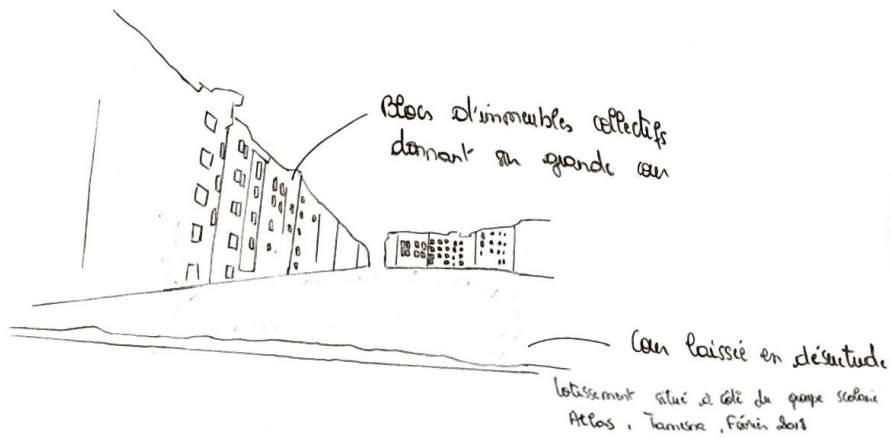 Blocs d'immeubles collectifs
donnant sur grande cour
Cour laissée en désuétude
Lotissement situé à côté du groupe scolaire
Atlas, Tamesna, Février 2018